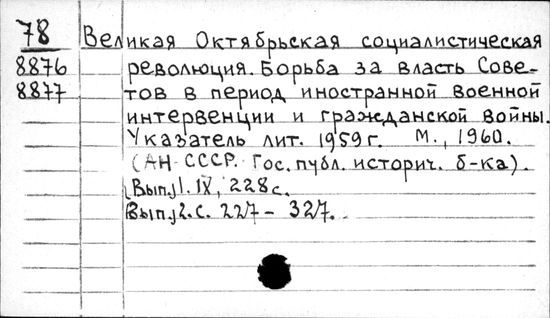 78 Великая Октябрьская социалистическая
8876 революция. Борьба за власть Сове-
8877 тов в период иностранной военной
интервенции и гражданской войны.
Указатель лит. 1959 г. М., 1960.
(АН СССР. Гос. публ. историч. б-ка).
(Вып.)1. IX, 228 с.
Вып.)2. С. 227 - 327.